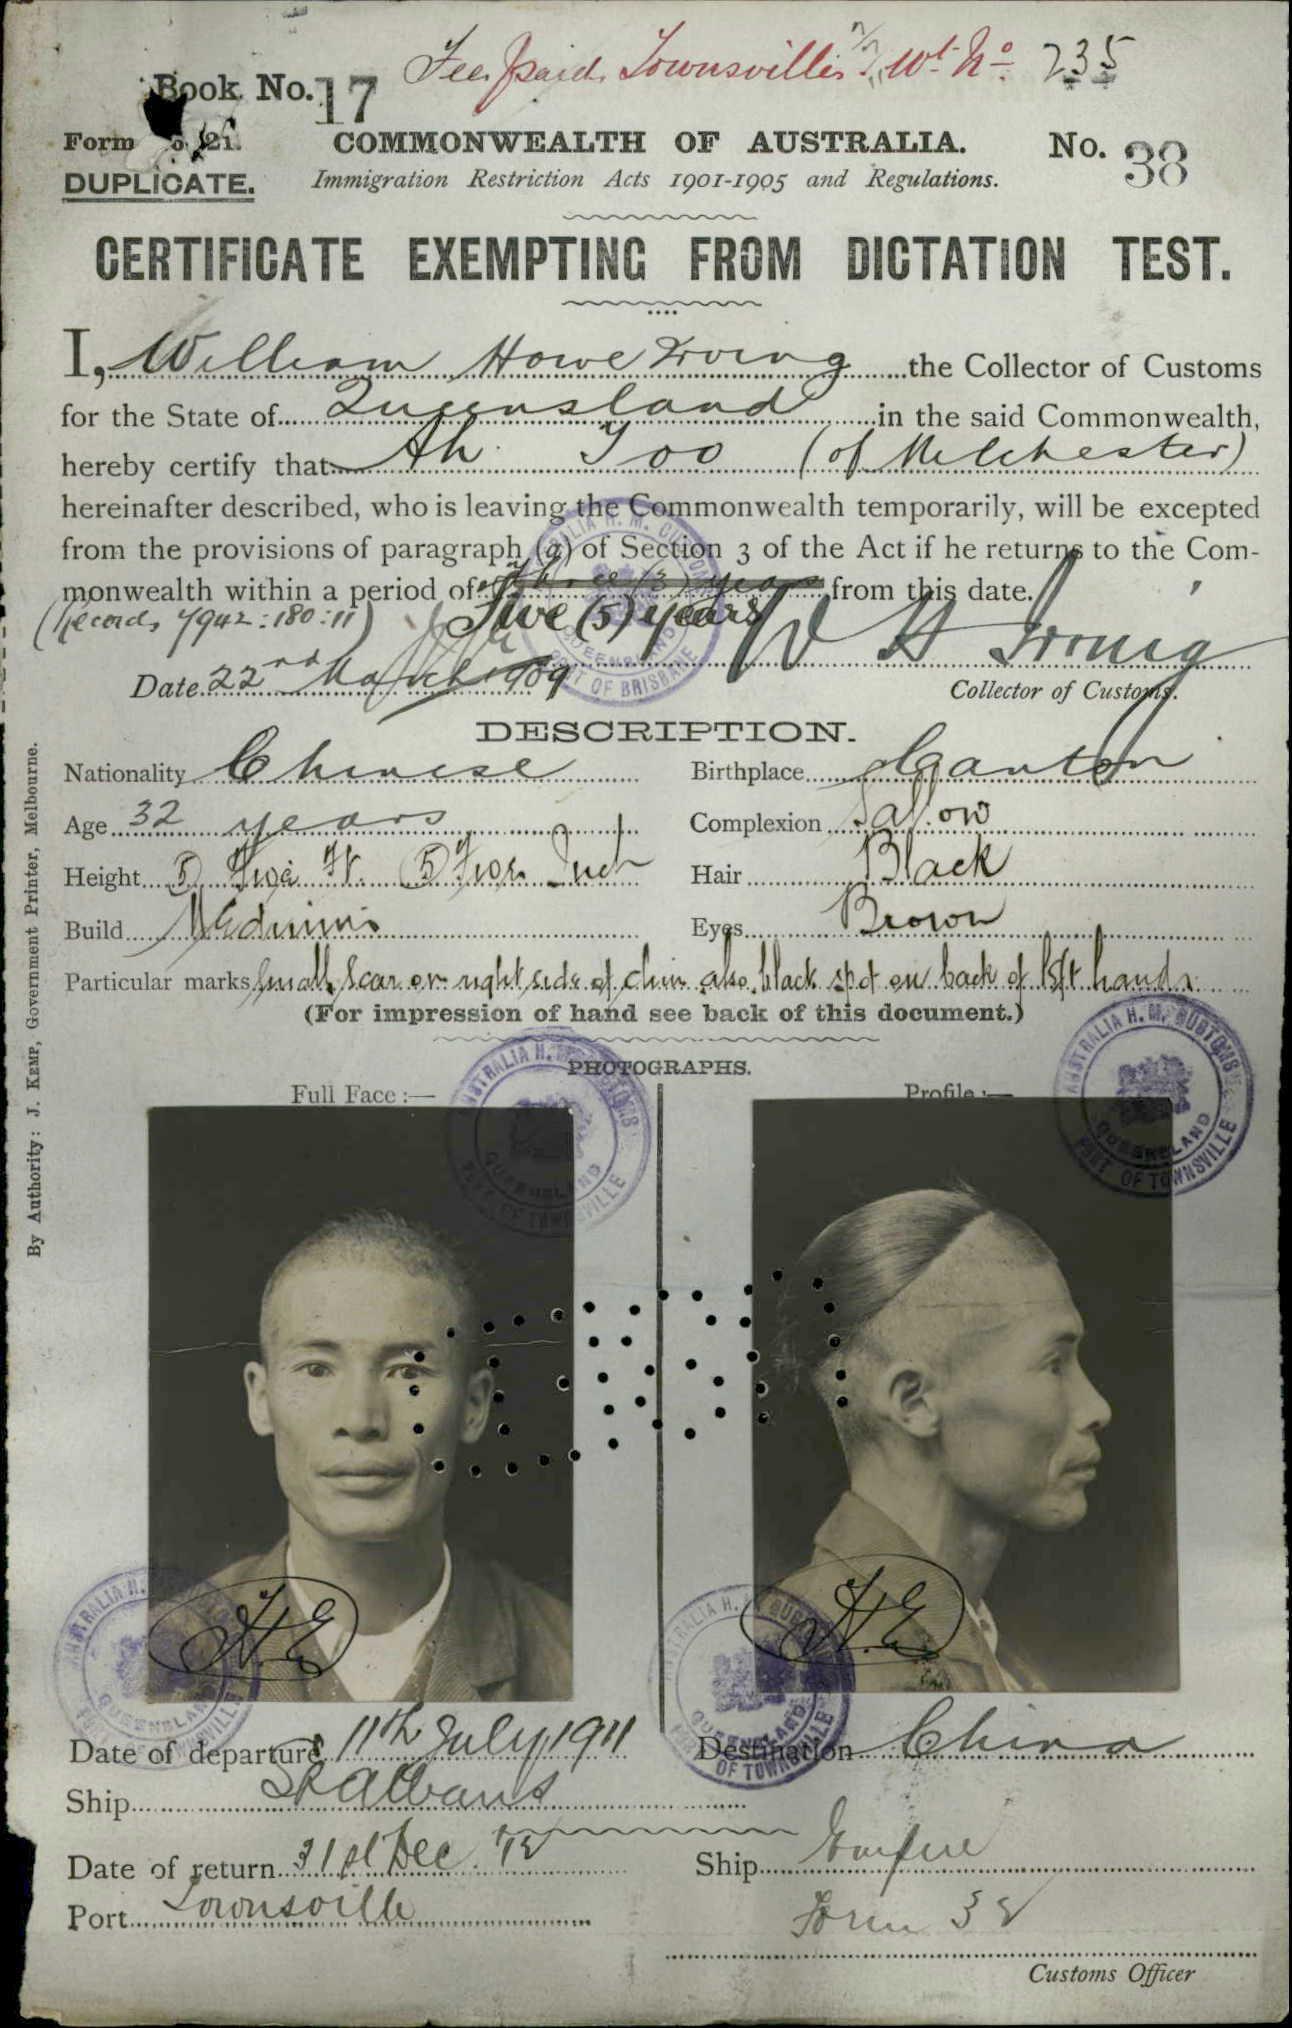 Fee paid. Townsville Wt. No. 235
Book No. 17
Form 21.
COMMONWEALTH OF AUSTRALIA.
No. 38
DUPLICATE.
Immigration Restriction Acts 1901-1905 and Regulations.
CERTIFICATE EXEMPTING FROM DICTATION TEST.
I, William Howe Irving the Collector of Customs
for the State of Queensland in the said Commonwealth,
hereby certify that Ah Too (of Milchester)
hereinafter described, who is leaving the Commonwealth temporarily, will be excepted
from the provisions of paragraph (a) of Section 3 of the Act if he returns to the Com-
monwealth within a period of three (3) years from this date.
(Records 7942:180:11) Five (5) years
W H Irving
Date 22nd March 1909
Collector of Customs.
DESCRIPTION.
Nationality Chinese Birthplace Canton
Age 32 years Complexion Sallow
Height 5 Five Ft. 5 Five Inch Hair Black
Build Medium Eyes Brown
Particular marks Small scar on right side of chin also black spot on back of left hand
(For impression of hand see back of this document.)
PHOTOGRAPHS.
Full Face :— Profile :—
AUSTRALIA H. M. CUSTOMS
QUEENSLAND
PORT OF BRISBANE
AUSTRALIA H. M. CUSTOMS
QUEENSLAND
PORT OF TOWNSVILLE
AUSTRALIA H. M. CUSTOMS
QUEENSLAND
PORT OF TOWNSVILLE
H.E.
H.E.
AUSTRALIA H. M. CUSTOMS
QUEENSLAND
PORT OF TOWNSVILLE
AUSTRALIA H. M. CUSTOMS
QUEENSLAND
PORT OF TOWNSVILLE
Date of departure 11th July 1911 Destination China
Ship St Albans
Date of return 31st Dec. '12 Ship Empire
Port Townsville
Form 32
Customs Officer
By Authority: J. KEMP, Government Printer, Melbourne.